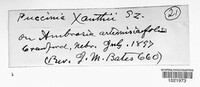 Puccinia Xanthii Sz. (21)
on Ambrosia artemisiaefolia
Crawford, Nebr. July, 1897
(Rev. J. M. Bates 660)
1021973